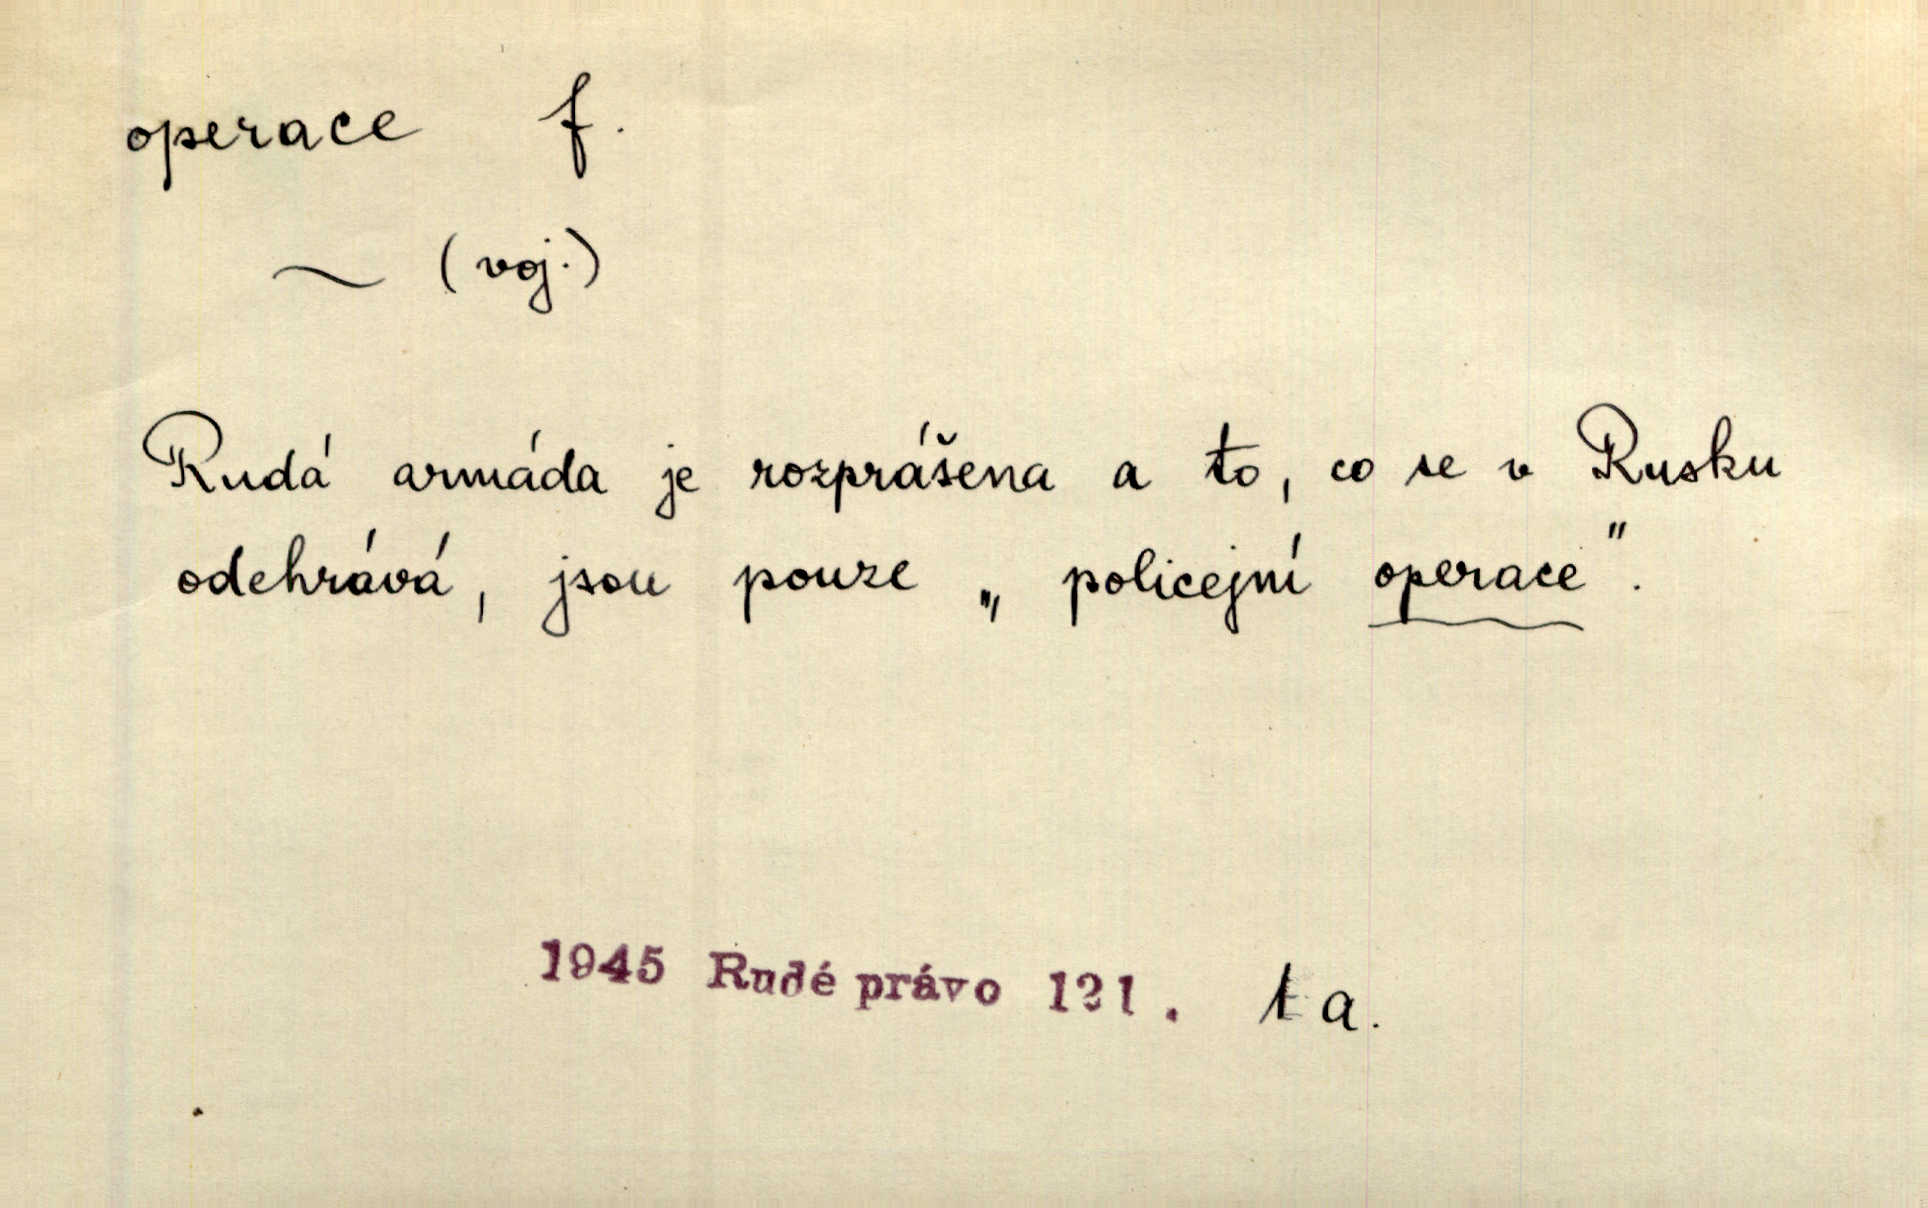 operace f.
~ (voj.)
Rudá armáda je rozprášena a to, co se v Rusku
odehrává, jsou pouze „policejní operace".
1945 Rudé právo 121. 1 a.